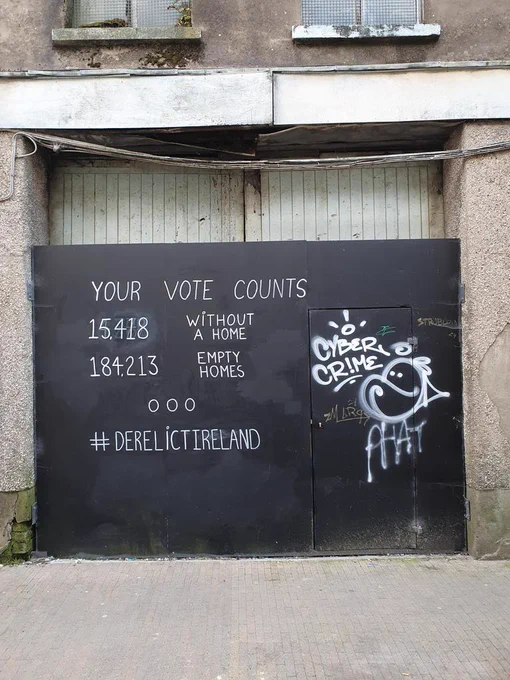 YOUR VOTE COUNTS
15,418 WiTHOUT
A HOME
184,213 EMPTY
HOMES
OOO
#DERELiCTiRELAND
CYBER
CR!ME
PHAT